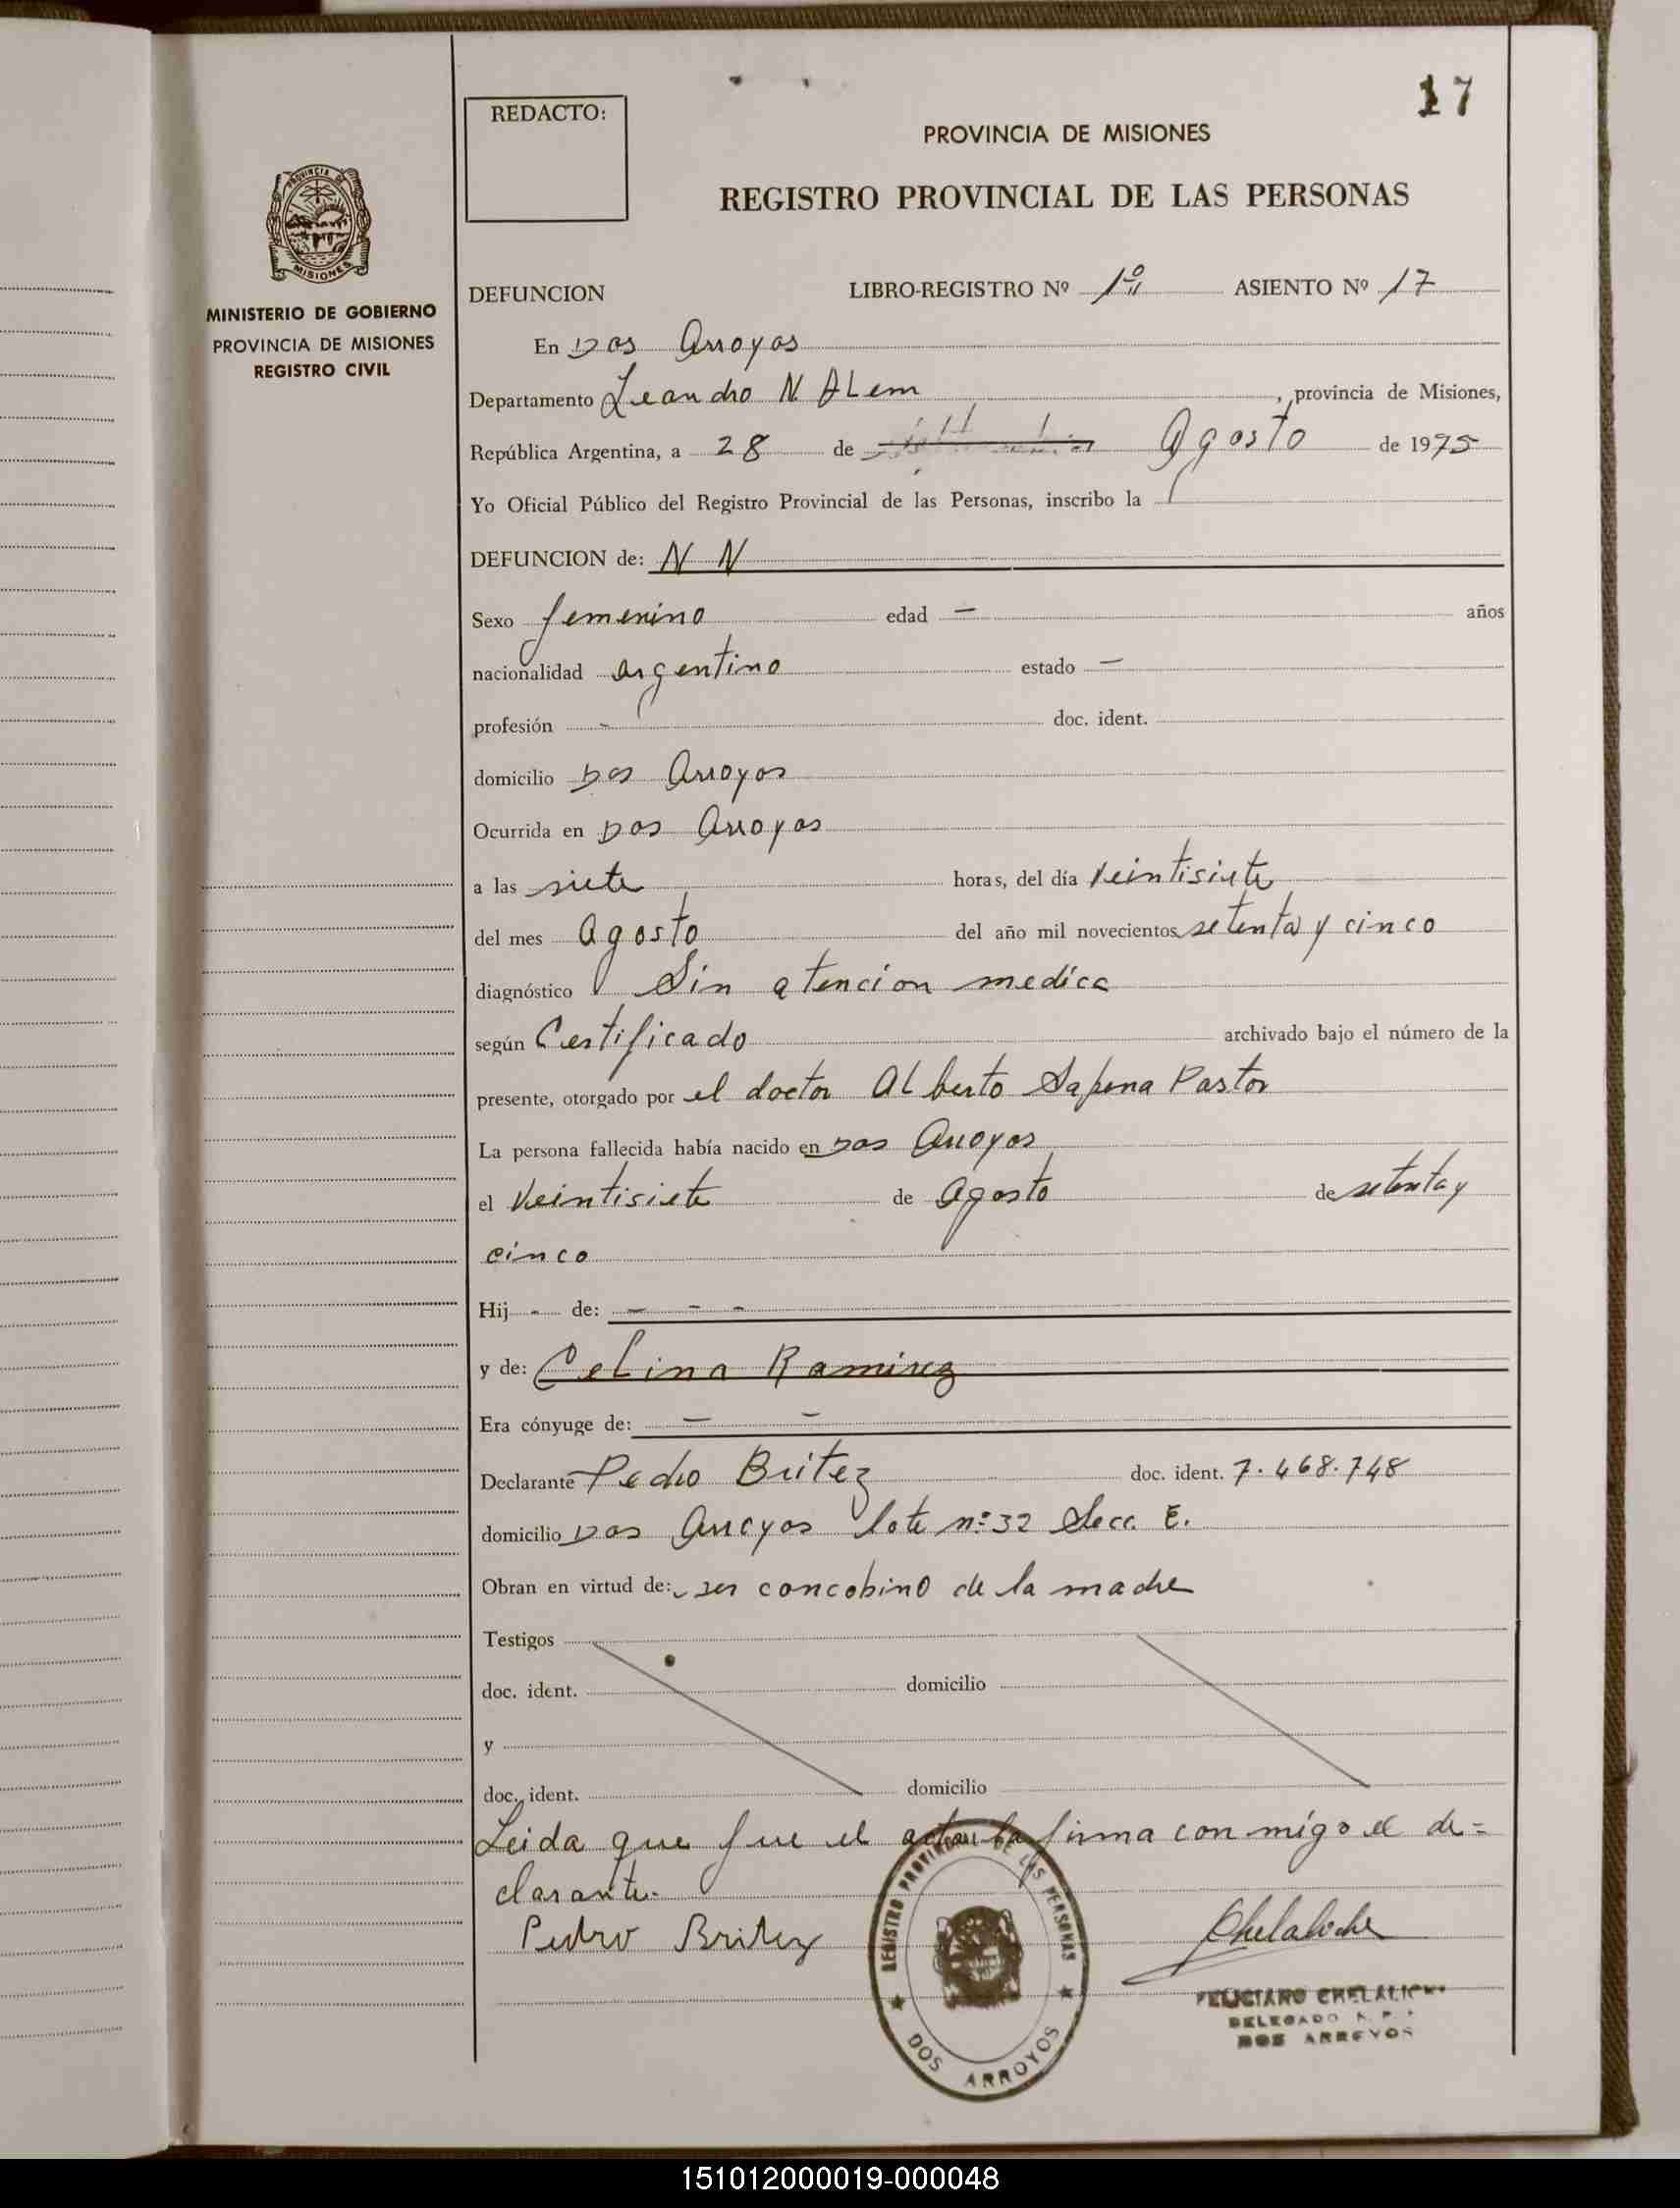 17
REDACTO:
PROVINCIA DE MISIONES
REGISTRO PROVINCIAL DE LAS PERSONAS
PROVINCIA DE
MISIONES
MINISTERIO DE GOBIERNO
PROVINCIA DE MISIONES
REGISTRO CIVIL
DEFUNCION LIBRO-REGISTRO Nº 1º ASIENTO Nº 17
En Dos Arroyos
Departamento Leandro N. ALem, provincia de Misiones,
República Argentina, a 28 de Agosto de 1975
Yo Oficial Público del Registro Provincial de las Personas, inscribo la
DEFUNCION de: N N
Sexo femenino edad — años
nacionalidad argentino estado —
profesión - doc. ident.
domicilio Dos Arroyos
Ocurrida en Dos Arroyos
a las siete horas, del día veintisiete
del mes Agosto del año mil novecientos setenta y cinco
diagnóstico Sin atencion medica
según Certificado archivado bajo el número de la
presente, otorgado por el doctor ALberto Sapena Pastor
La persona fallecida había nacido en Dos Arroyos
el veintisiete de Agosto de setenta y
cinco
Hij - de: — - -
y de: CeLina Ramirez
Era cónyuge de: — –
Declarante Pedro Britez doc. ident. 7.468.748
domicilio Dos Arroyos lote nº 32 Secc. E.
Obran en virtud de: ser concobino de la madre
Testigos
doc. ident. domicilio
y
doc. ident. domicilio
Leida que fue el acta la firma conmigo el de=
clarante.
Pedro Britez
REGISTRO PROVINCIAL DE LAS PERSONAS
DOS ARROYOS
FELICIANO CHELALICHE
DELEGADO R. P. P.
DOS ARROYOS
151012000019-000048